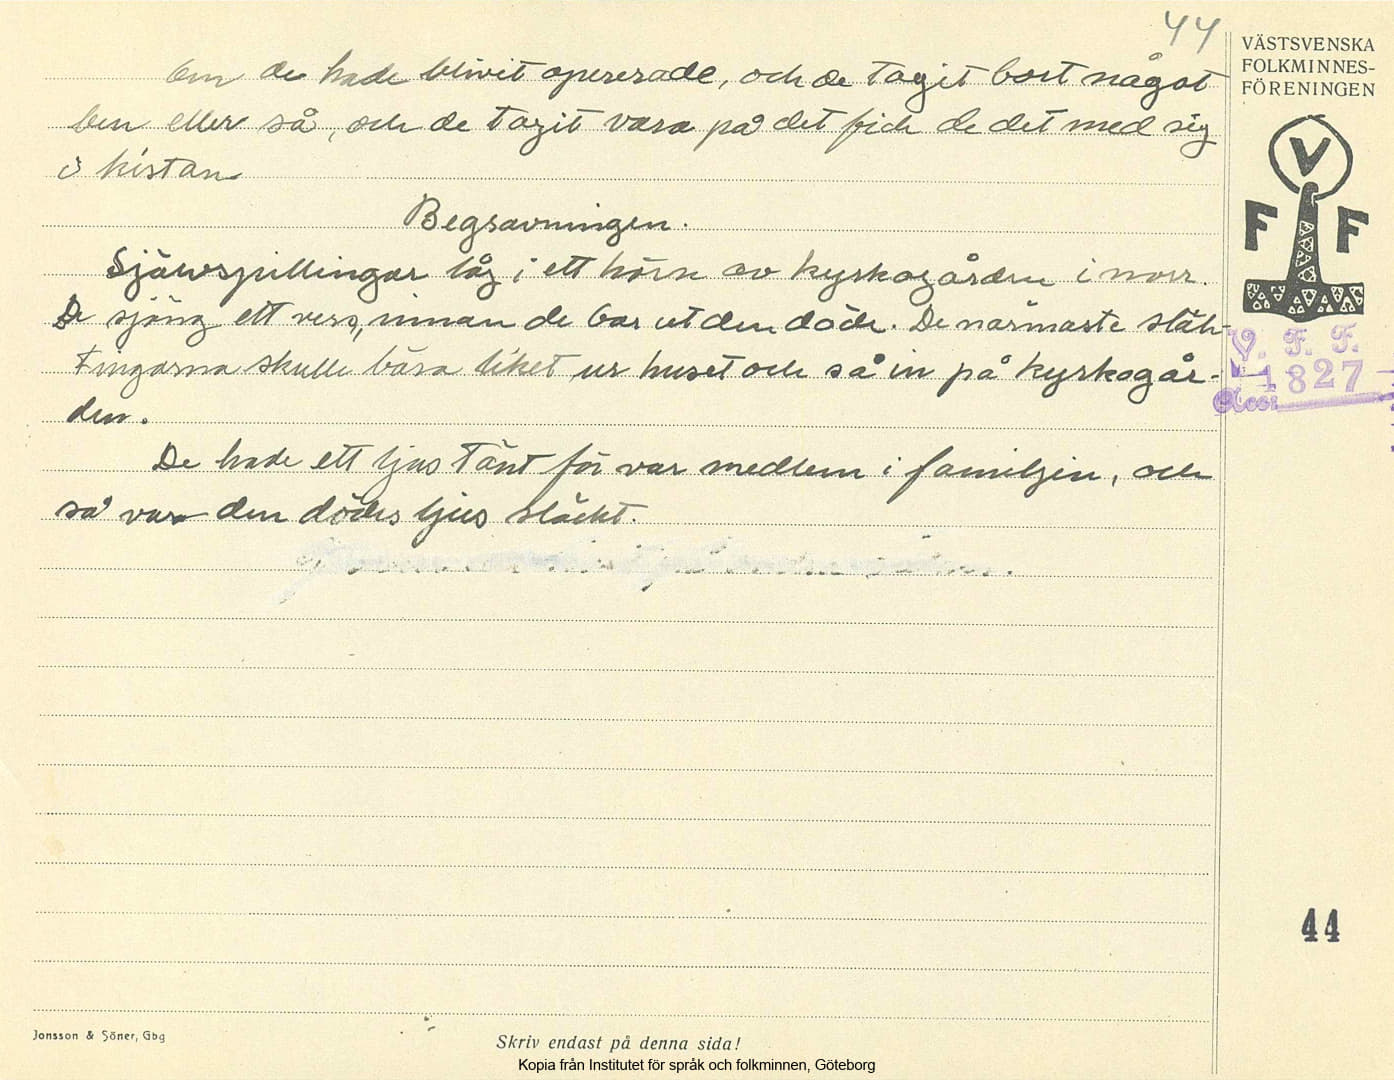 44
VÄSTSVENSKA
FOLKMINNES-
FÖRENINGEN
V
F F
V. F. F.
1827
Acc:
Om de hade blivit opererade, och de tagit bort något
ben eller så, och de tagit vara på det fick de det med sig
i kistan
Begravningen.
Självspillingar låg i ett hörn av kyrkogården i norr.
De sjöng ett vers, innan de bar ut den döde. De närmaste släk-
tingarna skulle bära liket ur huset och så in på kyrkogår-
den.
De hade ett ljus tänt för var medlem i familjen, och
så var den dödes ljus släckt.
44
Jonsson & Söner, Gbg
Skriv endast på denna sida!
Kopia från Institutet för språk och folkminnen, Göteborg